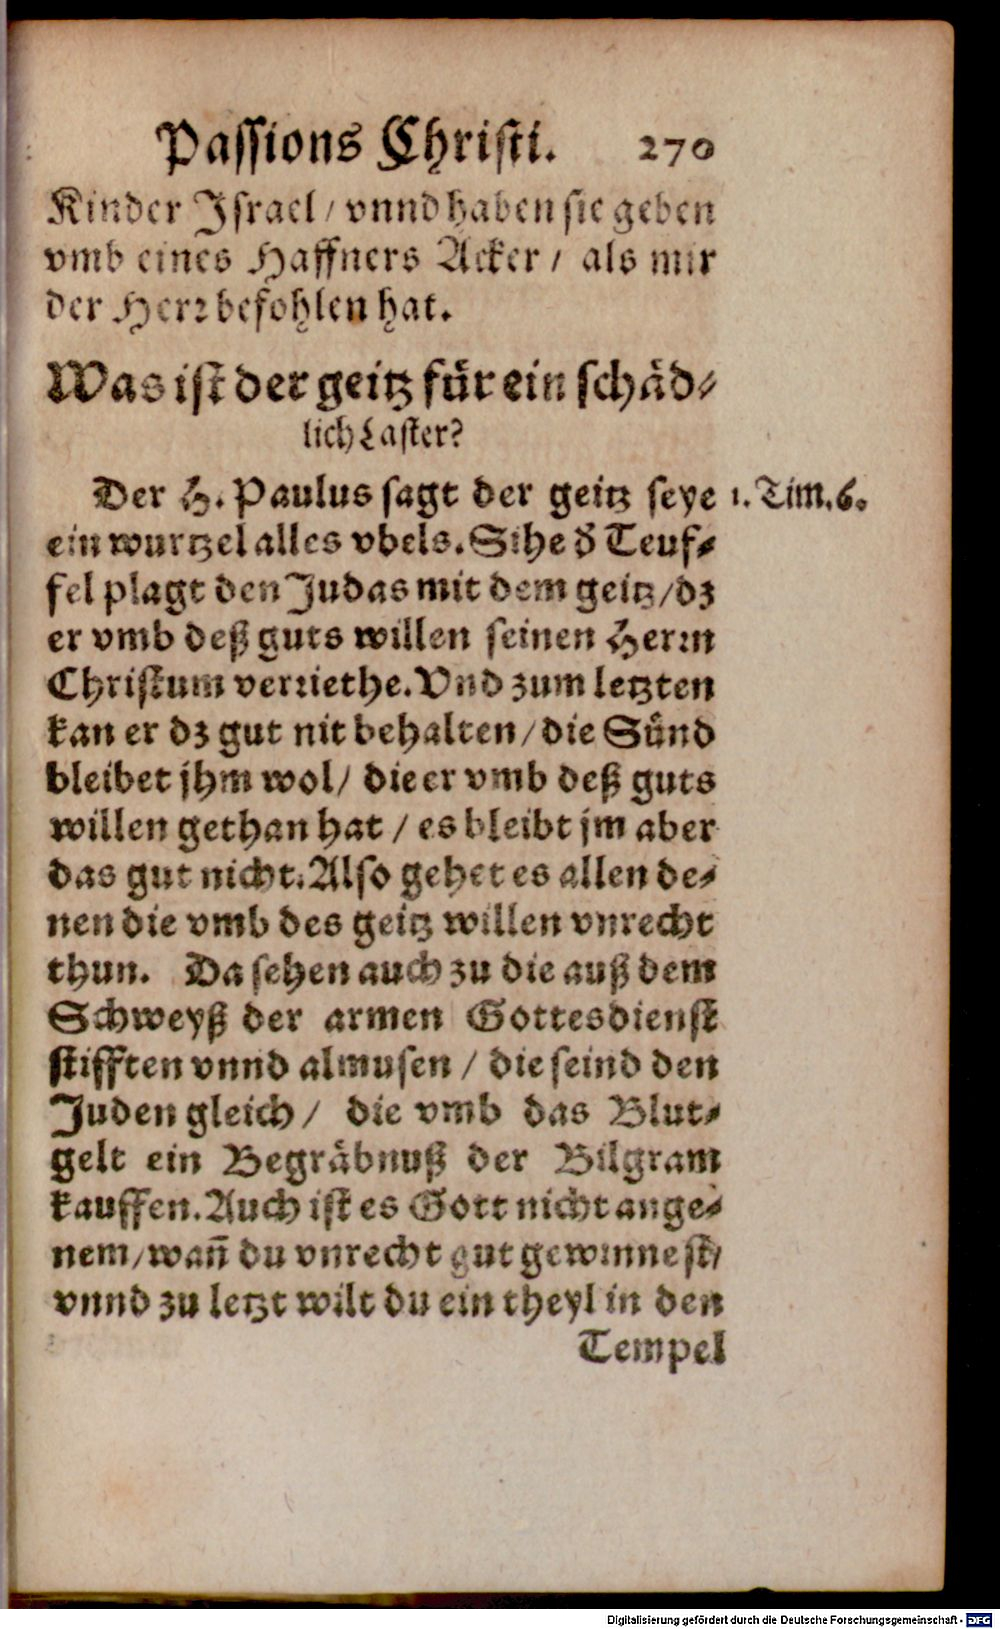 Passions Christi. 270
Kinder Israel / vnnd haben sie geben
vmb eines Haffners Acker / als mir
der Herr befohlen hat.
Was ist der geitz für ein schäd-
lich Laster?
Der H. Paulus sagt der geitz seye 1. Tim. 6.
ein wurtzel alles vbels. Sihe d̕ Teuf-
fel plagt den Judas mit dem geitz / dz
er vmb deß guts willen seinen Herrn
Christum verriethe. Vnd zum letzten
kan er dz gut nit behalten / die Sünd
bleibet jhm wol / die er vmb deß guts
willen gethan hat / es bleibt jm aber
das gut nicht. Also gehet es allen de-
nen die vmb des geitz willen vnrecht
thun. Da sehen auch zu die auß dem
Schweyß der armen Gottesdienst
stifften vnnd almusen / die seind den
Juden gleich / die vmb das Blut-
gelt ein Begräbnuß der Bilgram
kauffen. Auch ist es Gott nicht ange-
nem / wañ du vnrecht gut gewinnest /
vnnd zu letzt wilt du ein theyl in den
Tempel
Digitalisierung gefördert durch die Deutsche Forschungsgemeinschaft - DFG